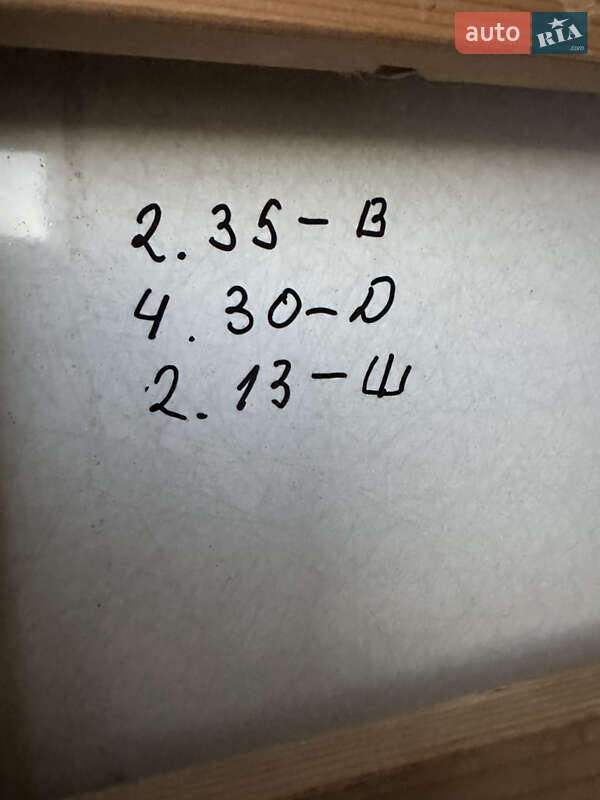 auto RIA .com
2.35 – В
4.30 – D
2.13 – Ш